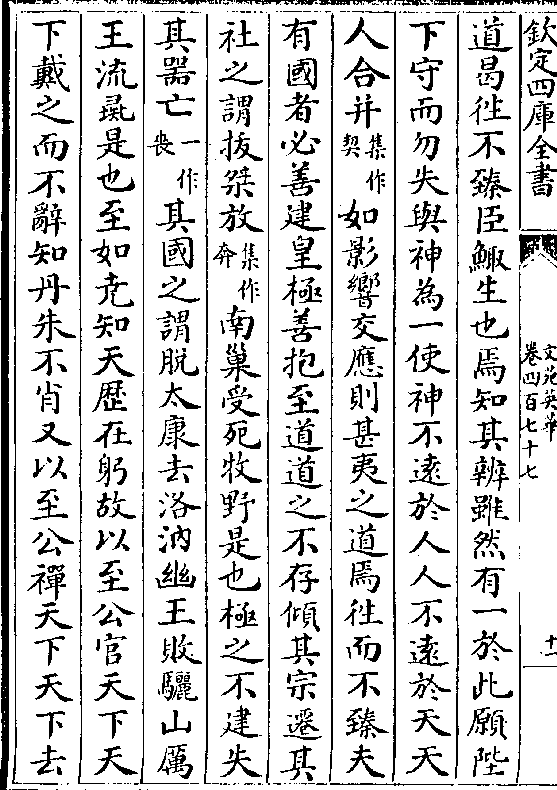 欽定四庫全書
文苑英華
卷四百七十七
十一
道曷徃不臻臣鯫生也焉知其辨雖然有一於此願陛
下守而勿失與神為一使神不遠於人人不遠於天天
人合并集作契如影響交應則甚夷之道焉徃而不臻夫
有國者必善建皇極善抱至道道之不存傾其宗遷其
社之謂拔桀放集作奔南巢受死牧野是也極之不建失
其器亡一作喪其國之謂脱太康去洛汭幽王敗驪山厲
王流彘是也至如尭知天歴在躬故以至公官天下天
下戴之而不辭知丹朱不肖又以至公禪天下天下去